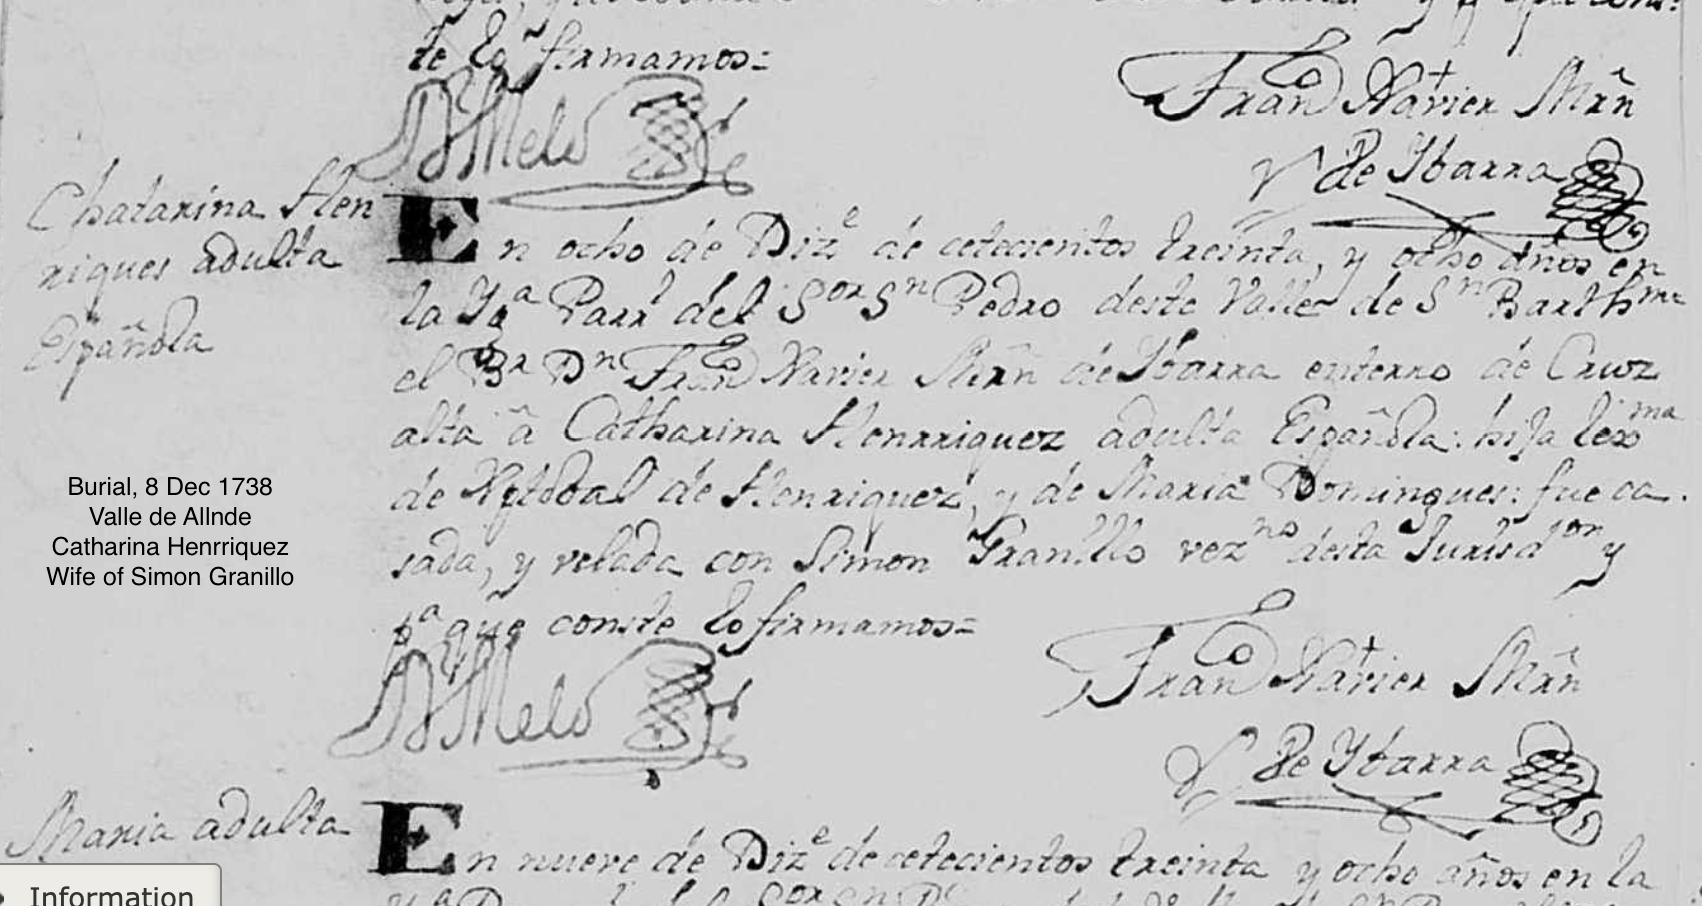 te lo firmamos=
Melo
Fran.co Xavier Mrñ
de Ybarra
Chatarina Hen
riques adulta
Española
En ocho de Diz.e de cetecientos treinta, y ocho años en
la Yg.a Parr.l del S.or S.n Pedro deste Valle de S.n Barth.me
el B.r D.n Fran.co Xavier Mrñ de Ybarra enterro de Cruz
alta â Catharina Henrriquez adulta Española: hija lex.ma
de Xptobal de Henriquez, y de Maria Domingues: fue ca
sada, y velada con Simon Granillo vez.no desta Jurisd.on y
p.a que conste lo firmamos=
Melo
Fran.co Xavier Mrñ
de Ybarra
Burial, 8 Dec 1738
Valle de Allnde
Catharina Henrriquez
Wife of Simon Granillo
Maria adulta
En nueve de Diz.e de cetecientos treinta y ocho años en la
Information